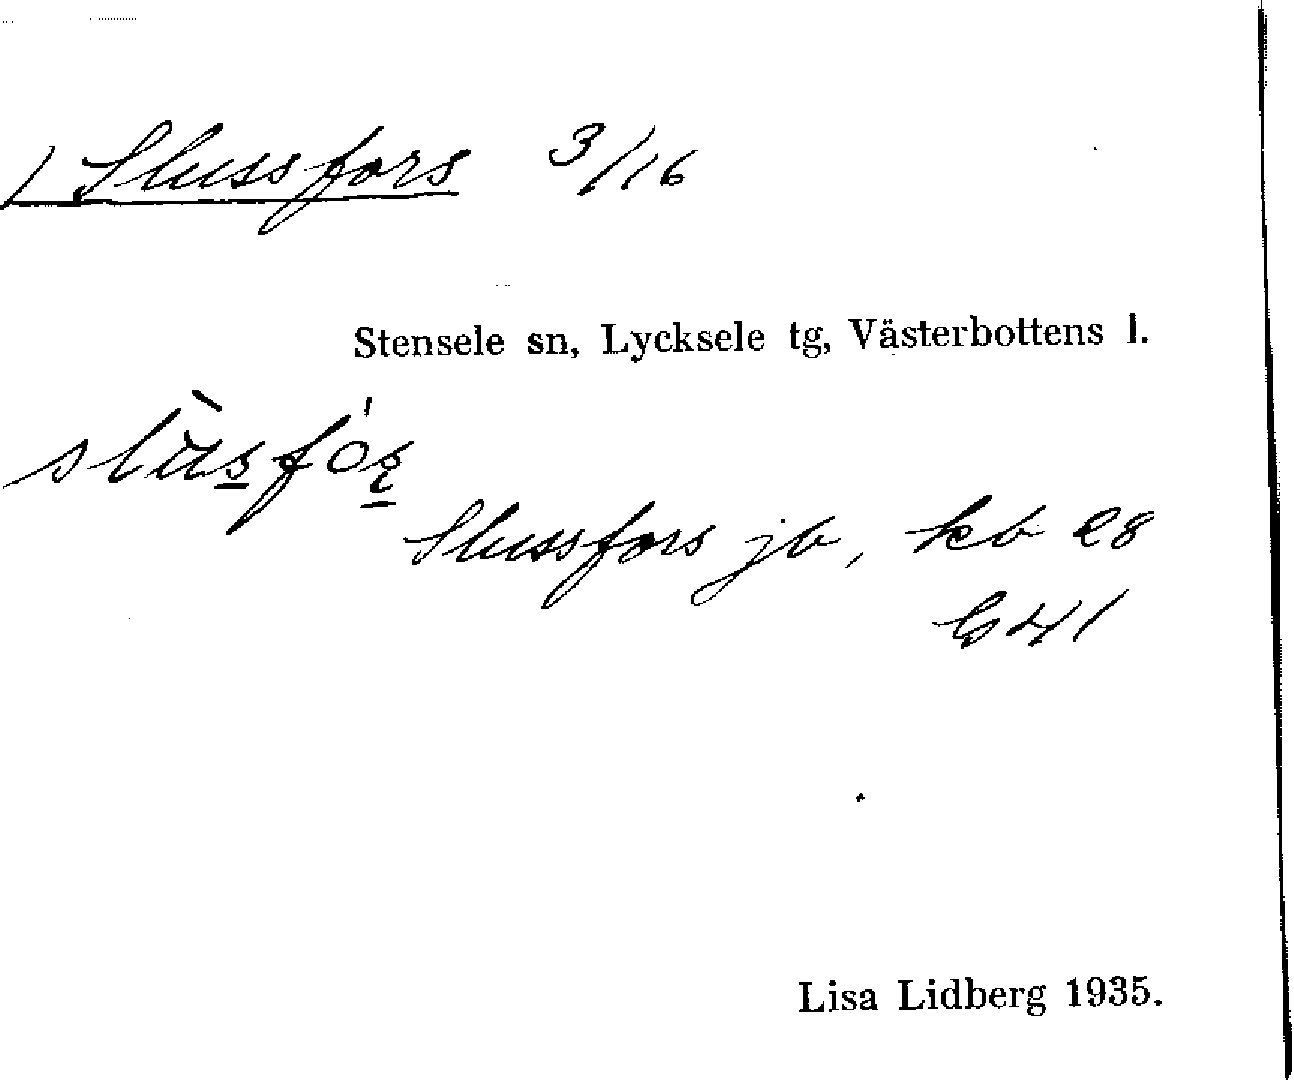 1 Slussfors 3/16
Stensele sn, Lycksele tg, Västerbottens l.
Slussfors jb, kb 28
G41
Lisa Lidberg 1935.